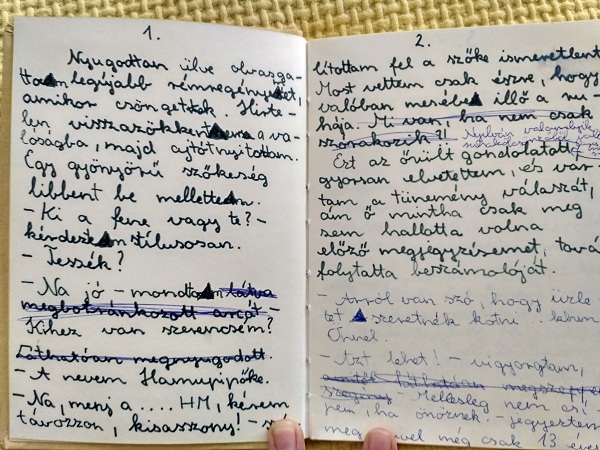 1.
Nyugodtan ülve olvasga-
legújabb rémregényét,
amikor csöngettek. Hirte-
len visszazökkentem a va-
lóságba, majd ajtót nyitottam.
Egy gyönyörű szőkeség
libbent be mellettem.
- Ki a fene vagy te? -
kérdeztem stílusosan.
- Tessék?
- Na jó - mondtam látva
megbotránkozott arcát -
Kihez van szerencsém?
Láthatóan megnyugodott.
- A nevem Hamupipőke.
- Na, menj a ..... HM, kérem
távozzon, kisasszony! -
2.
lítottam fel a szőke ismeretlent
Most vettem csak észre, hogy
valóban mesébe illő a ru-
hája. Mi van, ha nem csak
szórakozik?!
Ezt az őrült gondolatot
gyorsan elvetettem, és vár-
tam a tünemény válaszát,
ám ő mintha csak meg
sem hallotta volna
előző megjegyzésemet, tová
folytatta beszámolóját.
- Arról van szó, hogy üzle-
tet szeretnék kötni .. lehen
Önnel.
- Azt lehet! - vigyorogtam,
amitől láthatóan megszeppen
szegény - Mellesleg nem csí-
pem, ha önöznek - jegyeztem
meg, mivel még csak 13 éves